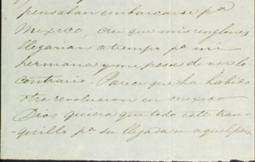 pensaban embarcarse pª
Mexico, creo que mis renglones
llegarian a tiempo pª mi
hermana y me pesa de verlo
contrario. Parece que ha habido
otra revolucion en mexico
Dios quiera que todo esté tran-
quillo pª su llegada a aquel pais